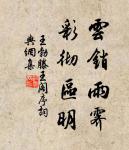 雲銷雨霽
彩徹區明
王勃滕王閣序詞
典網集